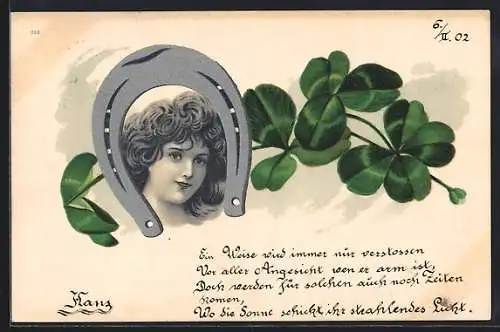 6./II. 02
Ein Weise wird immer nur verstossen
Vor aller Angesicht wen er arm ist,
Doch werden für solchen auch noch Zeiten
komen,
Wo die Sonne schickt ihr strahlendes Licht.
Hans